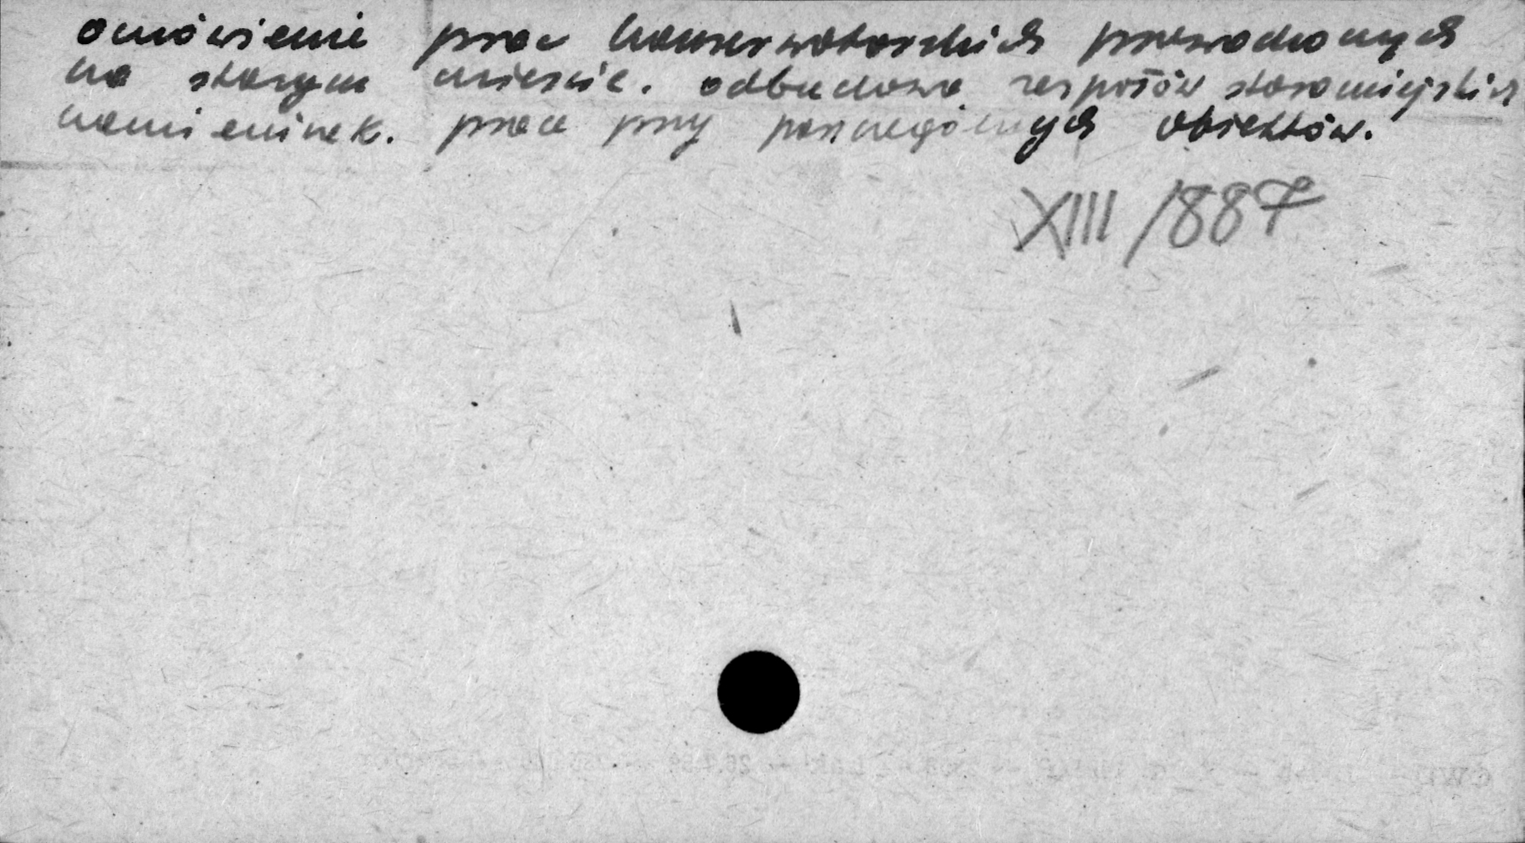 omówienie prac konserwatorskich prowadzonych
na starym mieście. odbudowa zespołów staromiejskich
kamieniczek. prace przy poszczególnych obiektów.
XIII /887